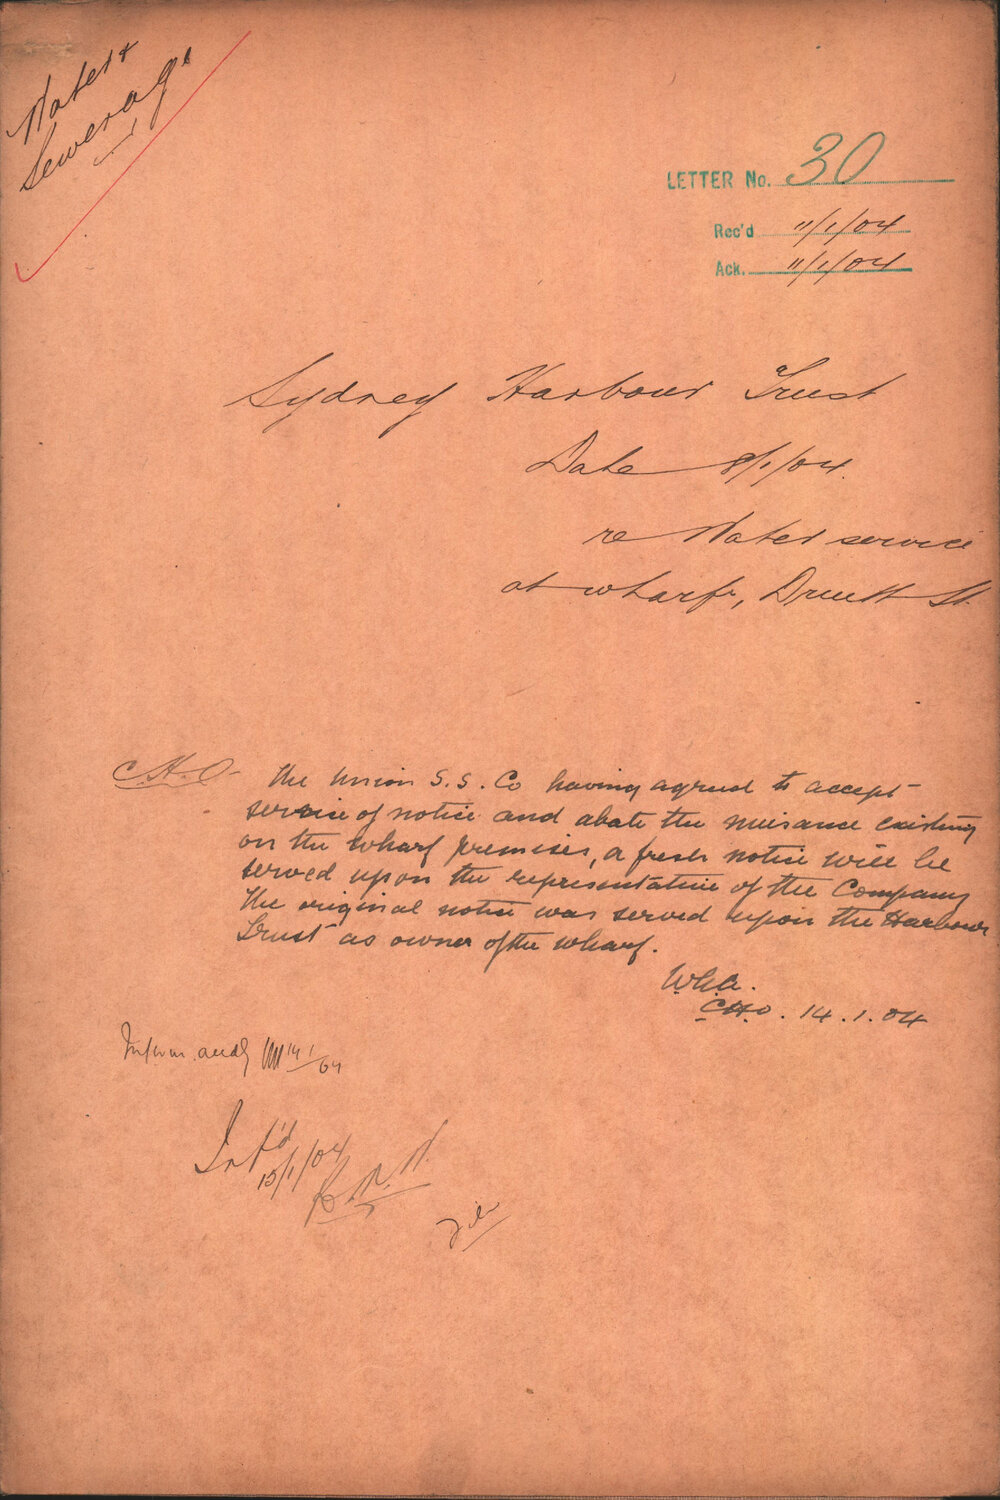 Water &
Sewerage
LETTER No. 30
Rec'd 11/1/04
Ack. 11/1/04
Sydney Harbour Trust
Date 8/1/04.
re Water service
at wharf, Druitt St.
C.H.O. The Union S.S. Co having agreed to accept
service of notice and abate the nuisance existing
on the wharf premises, a fresh notice will be
served upon the representative of the Company
The original notice was served upon the Harbour
Trust as owner of the wharf.
W.G.A.
CHO. 14.1.04
Inform. 14/1/04
Inf'd
15/1/04
File